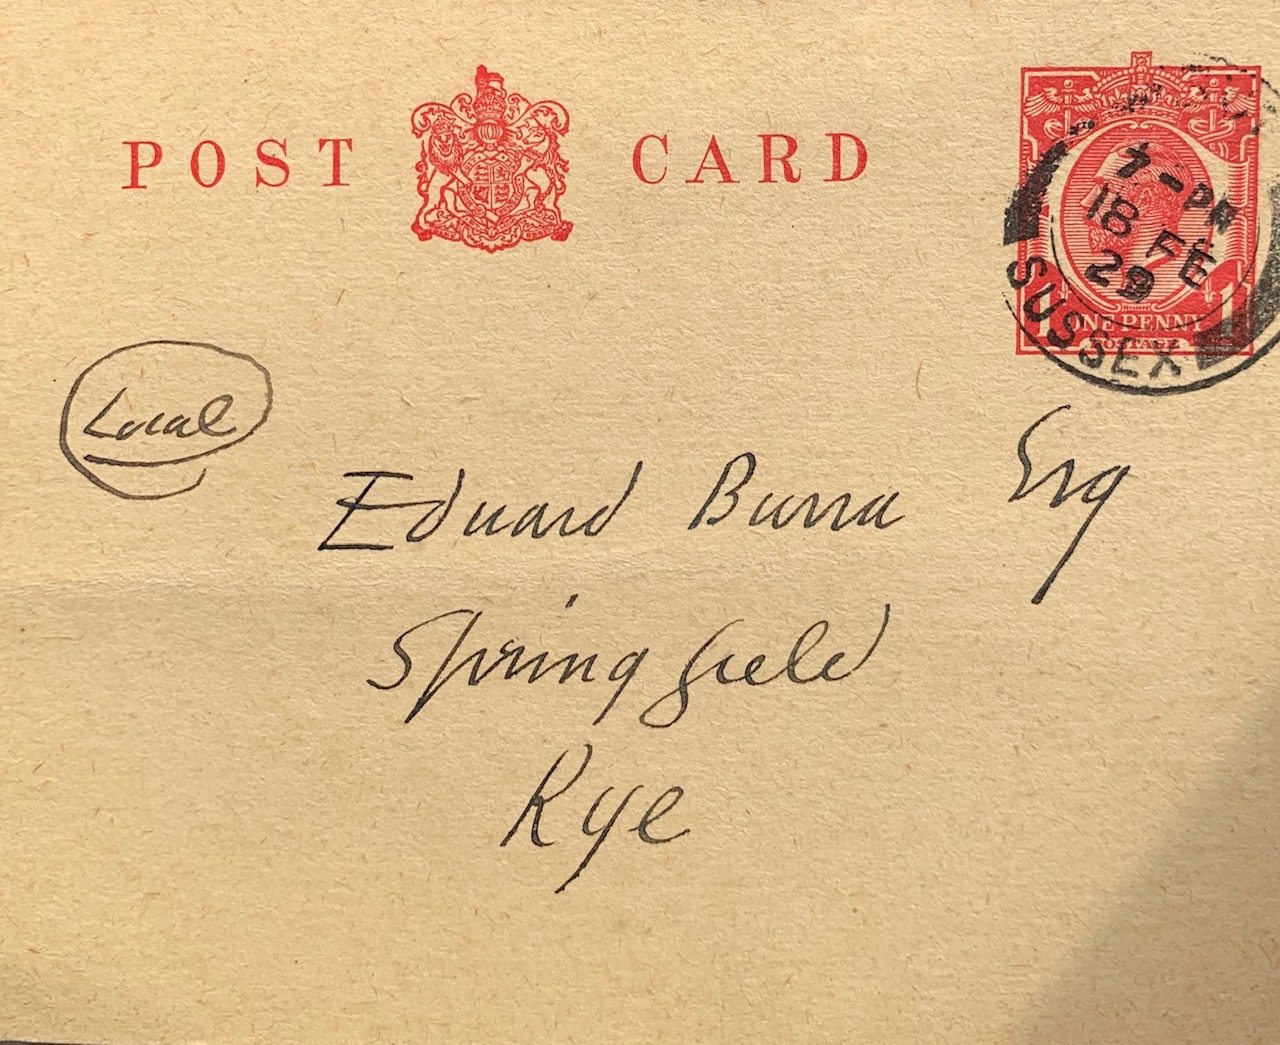 POST CARD
7-PM
18 FE
29
SUSSEX
ONE PENNY
POSTAGE
1 1
Local
Eduard Burra Esq
Springfield
Rye